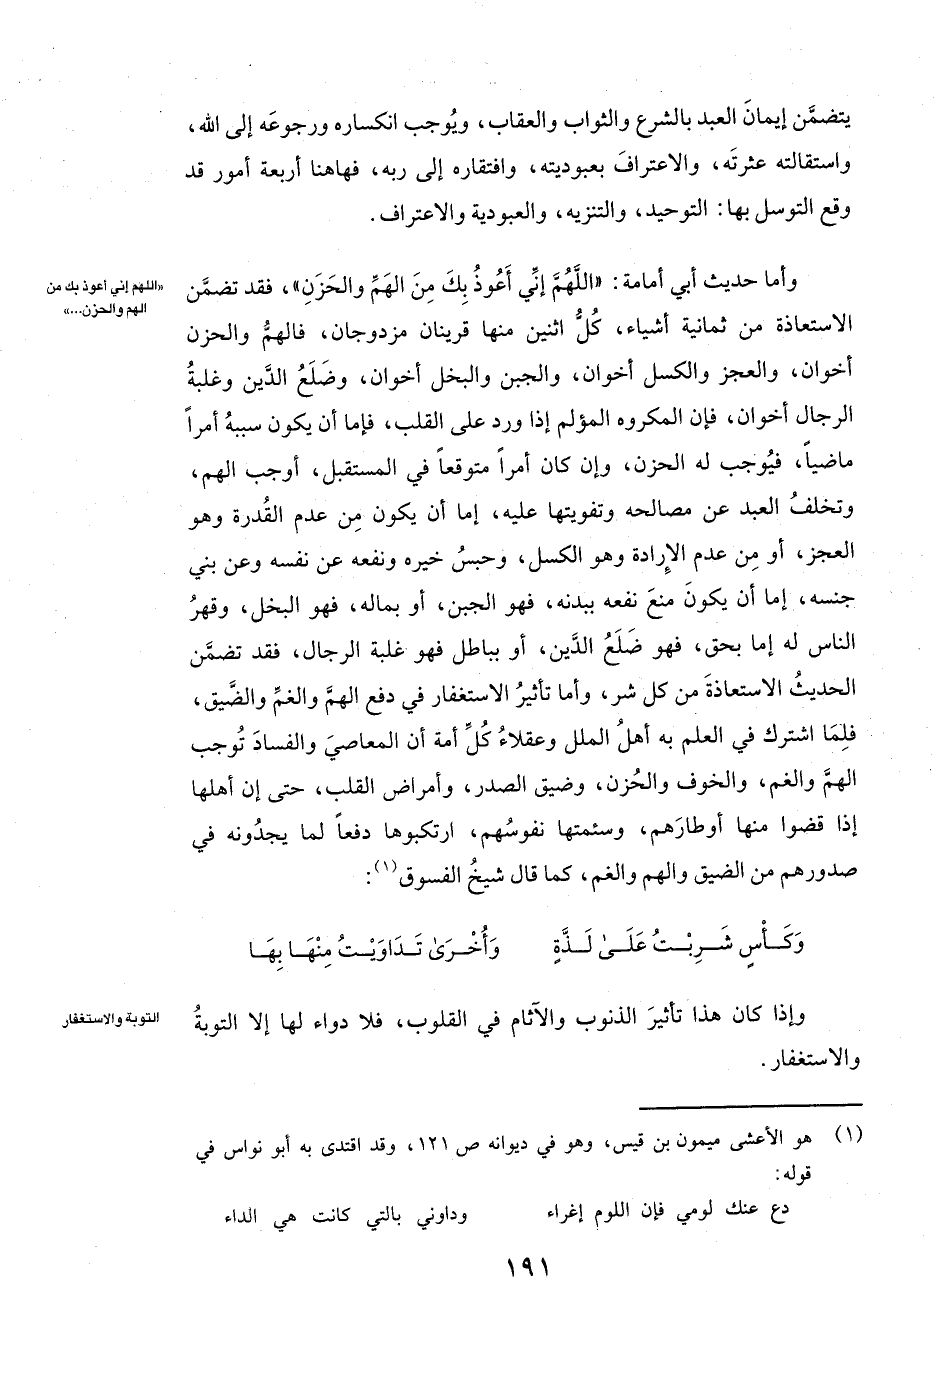 يتضمَّن إيمانَ العبد بالشرع والثواب والعقاب، ويُوجب انكساره ورجوعَه إلى الله،
واستقالته عثرتَه، والاعترافَ بعبوديته، وافتقاره إلى ربه، فهاهنا أربعة أمور قد
وقع التوسل بها: التوحيد، والتنزيه، والعبودية والاعتراف.
وأما حديث أبي أمامة: «اللَّهُمَّ إنِّي أَعُوذُ بِكَ مِنَ الهَمِّ والحَزَنِ»، فقد تضمَّن
«اللهم إني أعوذ بك من
الهم والحزن...»
الاستعاذة من ثمانية أشياء، كُلُّ اثنين منها قرينان مزدوجان، فالهمُّ والحزن
أخوان، والعجز والكسل أخوان، والجبن والبخل أخوان، وضَلَعُ الدَّين وغلبةُ
الرجال أخوان، فإن المكروه المؤلم إذا ورد على القلب، فإما أن يكون سببهُ أمراً
ماضياً، فيُوجب له الحزن، وإن كان أمراً متوقعاً في المستقبل، أوجب الهم،
وتخلفُ العبد عن مصالحه وتفويتها عليه، إما أن يكون مِن عدم القُدرة وهو
العجز، أو مِن عدم الإِرادة وهو الكسل، وحبسُ خيره ونفعه عن نفسه وعن بني
جنسه، إما أن يكونَ منعَ نفعه ببدنه، فهو الجبن، أو بماله، فهو البخل، وقهرُ
الناس له إما بحق، فهو ضَلَعُ الدَّين، أو بباطل فهو غلبة الرجال، فقد تضمَّن
الحديثُ الاستعاذةَ من كل شر، وأما تأثيرُ الاستغفار في دفع الهمِّ والغمِّ والضَّيق،
فلِمَا اشترك في العلم به أهلُ الملل وعقلاءُ كُلِّ أمة أن المعاصيَ والفسادَ تُوجب
الهمَّ والغم، والخوف والحُزن، وضيق الصدر، وأمراض القلب، حتى إن أهلها
إذا قضوا منها أوطارَهم، وسئمتها نفوسُهم، ارتكبوها دفعاً لما يجدُونه في
صدورهم من الضيق والهم والغم، كما قال شيخُ الفسوق(١):
وَكَـأْسٍ شَـرِبْـتُ عَلَـىٰ لَـذَّةٍ وَأُخْـرَىٰ تَـدَاوَيْـتُ مِنْهَـا بِهَـا
وإذا كان هذا تأثيرَ الذنوب والآثام في القلوب، فلا دواء لها إلا التوبةُ
التوبة والاستغفار
والاستغفار.
(١) هو الأعشى ميمون بن قيس، وهو في ديوانه ص ١٢١، وقد اقتدى به أبو نواس في
قوله:
دع عنك لومي فإن اللوم إغراء وداوني بالتي كانت هي الداء
١٩١